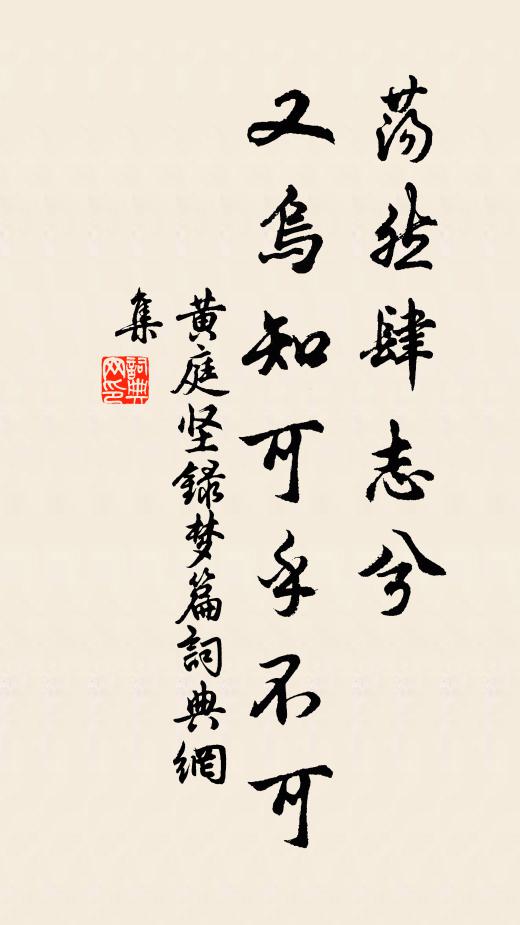 荡然肆志兮
又烏知可乎不可
黄庭坚録梦篇詞典網
集
詞典网印